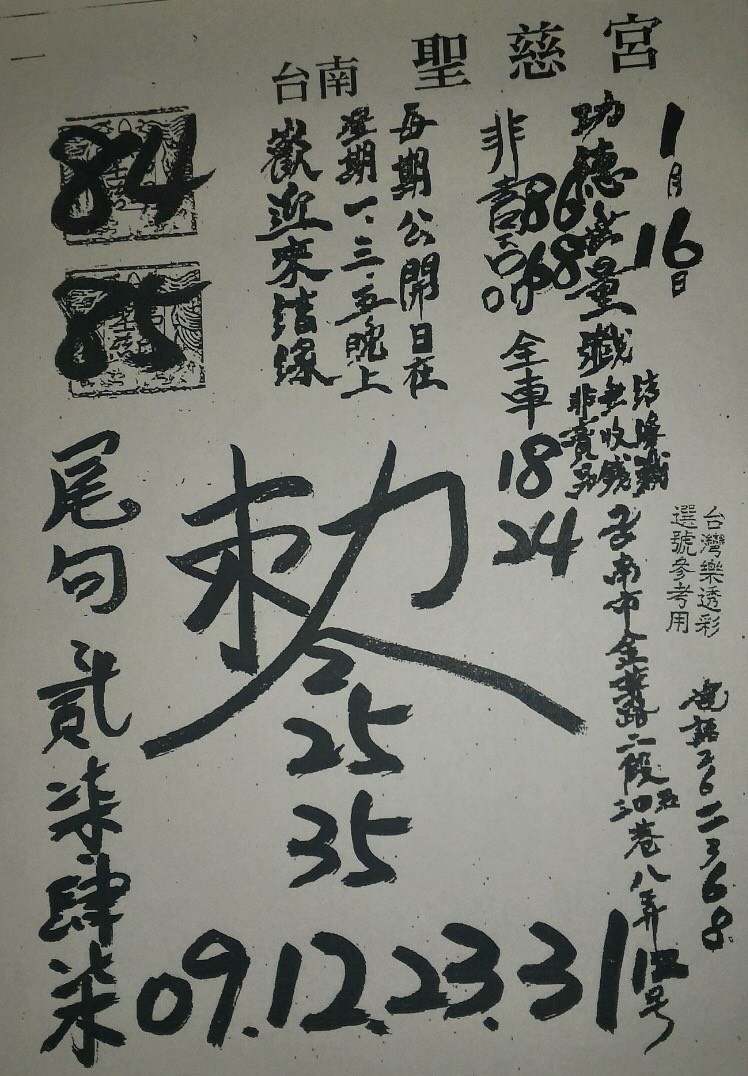 台南 聖慈宮
1月16日
功德無量
結緣
無收錢
非賣品
台灣樂透彩
選號參考用
電話二六二三六八
台南市金華路二段
巷八弄
号
非
86
68
全車
18
24
每期公開日在
星期一、三、五晚上
歡迎來結緣
84
85
敕
2
25
35
尾句
貳柒肆柒
09.12.23.31